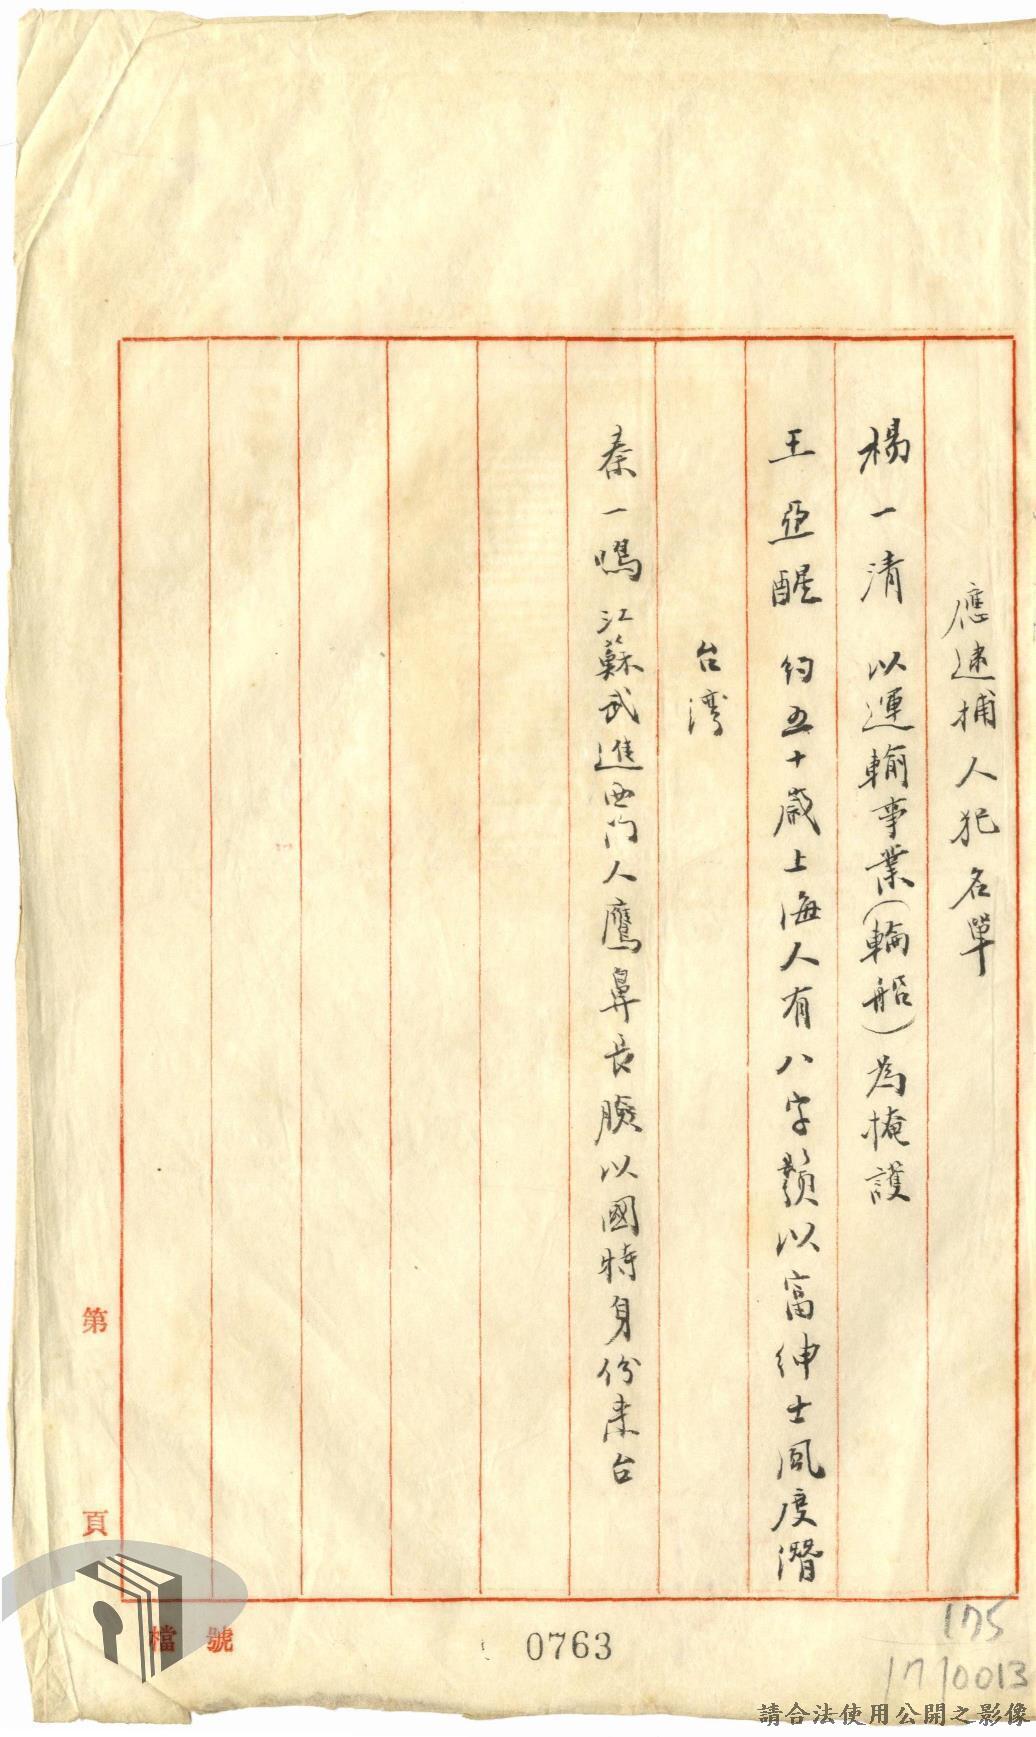 應逮捕人犯名單
楊一清 以運輸事業(輪船)為掩護
王亞醒 約五十歲上海人有八字鬚以富紳士風度潛
台灣
秦一鳴 江蘇武進西门人鷹鼻長臉以國特身份来台
第 頁
檔號
0763
175
1710013
請合法使用公開之影像